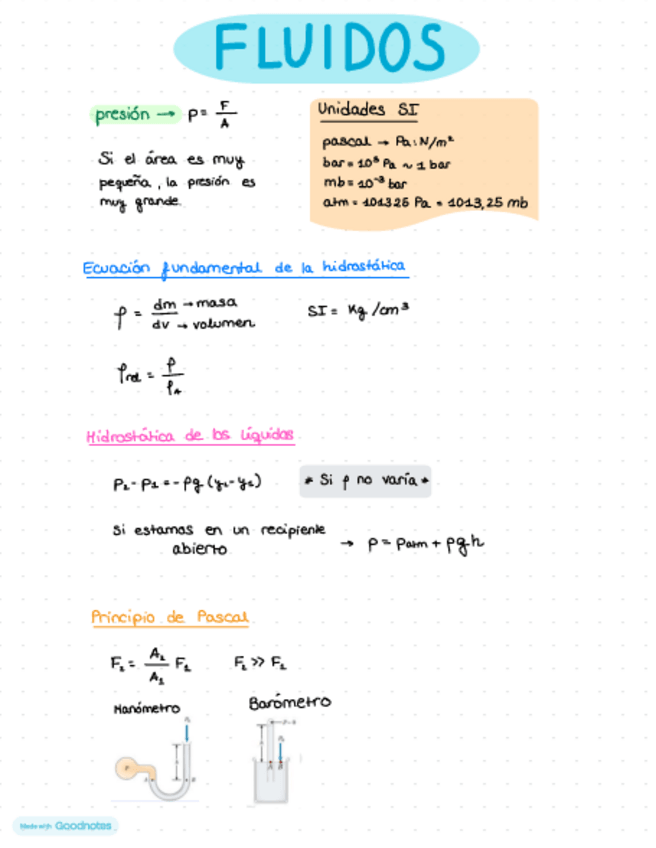 FLUIDOS
presión → P = F/A
Si el área es muy
pequeña, la presión es
muy grande.
Unidades SI
pascal → Pa: N/m²
bar = 10⁵ Pa ~ 1 bar
mb = 10⁻³ bar
atm = 101325 Pa = 1013,25 mb
Ecuación fundamental de la hidrostática
ρ = dm → masa
dv → volumen
SI = Kg/cm³
ρrel = ρ/ρA
Hidrostática de los líquidos
P₂ - P₁ = -ρg (y₂-y₁)
* Si ρ no varía *
Si estamos en un recipiente
abierto
→ P = Patm + ρgh
Principio de Pascal
F₂ = A₂/A₁ F₁
F₂ >> F₁
Manómetro
Barómetro
Made with Goodnotes